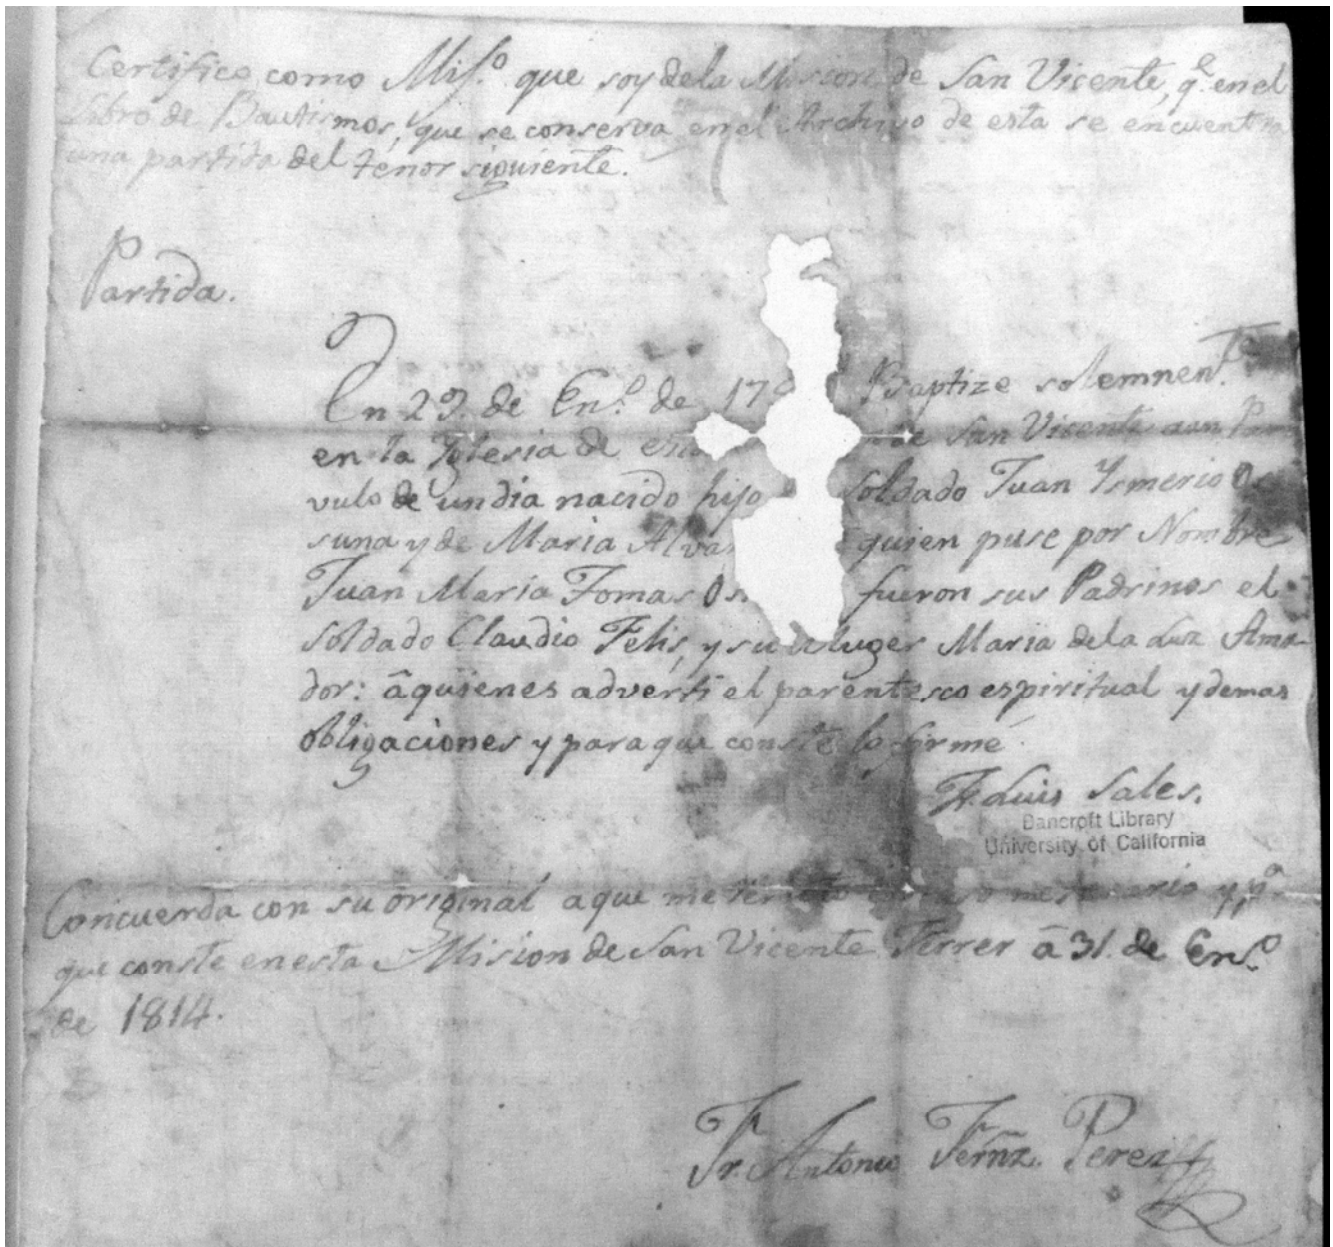 Certifico como Miſ.º que soy dela Mision de San Vicente, q.e en el
Libro de Bautismos, que se conserva en el Archivo de esta se encuentra
una partida del tenor siguiente.
Partida.
En 29. de En.º de 17 Baptize solemnen.te
en la Yglesia de de San Vicente a un Par
vulo de un dia nacido hijo soldado Juan Ysmerio Os
suna y de Maria Alva quien puse por Nombre
Juan Maria Tomas Os fueron sus Padrinos el
soldado Claudio Felis, y su Muger Maria dela Luz Ama-
dor: â quienes adverti el parentesco espiritual y demas
obligaciones y para que conste lo firmé
Fr. Luis Sales.
Bancroft Library
University of California
Concuerda con su original a que me remito y p.ª
que conste en esta Mision de San Vicente Ferrer â 31. de En.º
de 1814.
Fr. Antonio Ferñz. Perez